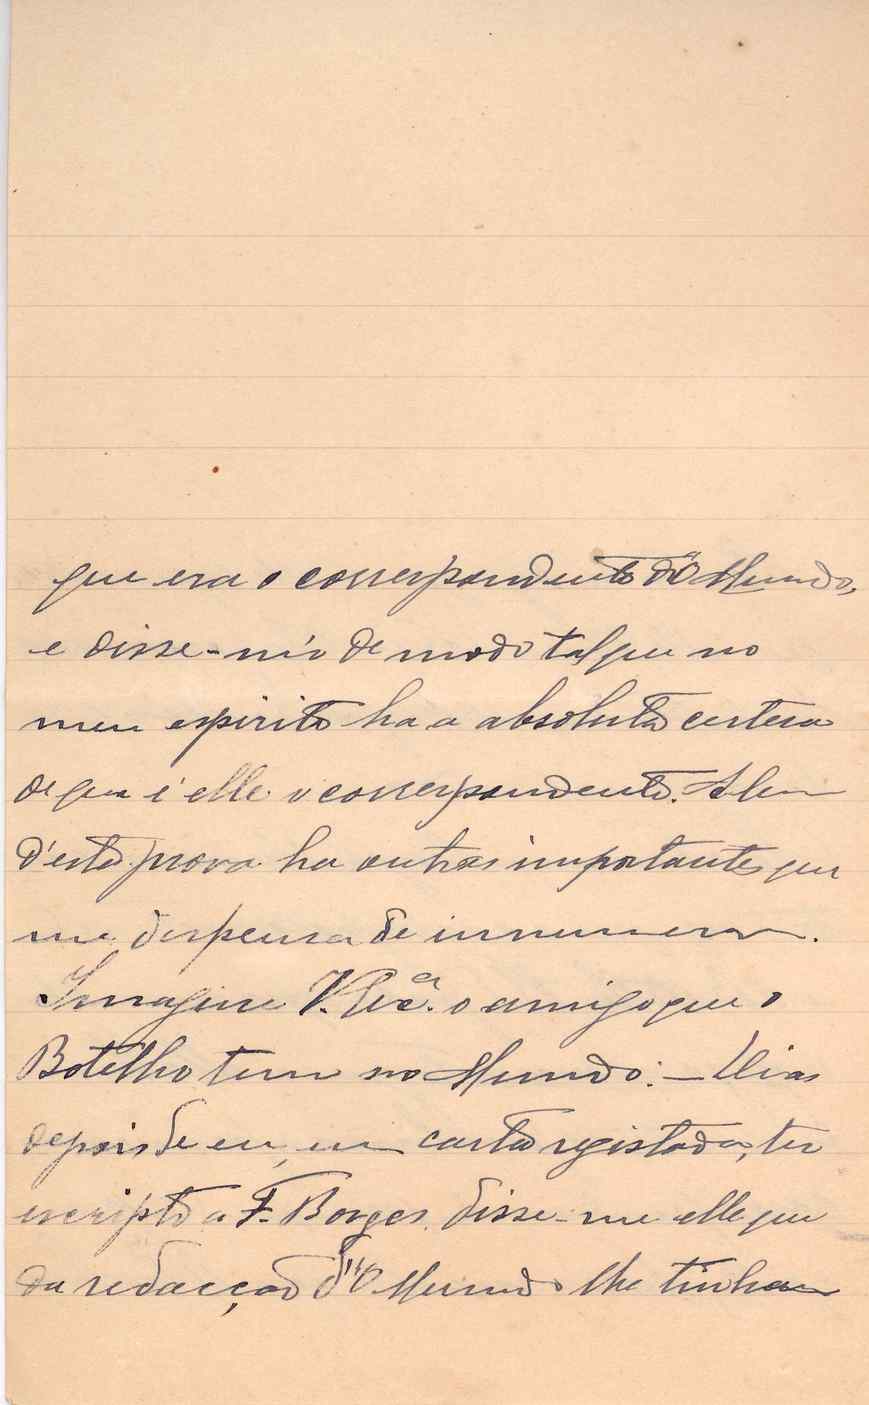 que era o correspondente d'O Mundo,
e disse-m'o de modo tal que no
meu espirito ha a absoluta certesa
de que é elle o correspondente. Alem
d'esta prova ha outras importantes que
me dispensa de innumerar.
Imagine V. Exᶜⁱᵃ. o amigo que o
Botelho tem no Mundo: — Dias
depois de eu, em carta registada, ter
escripto a F. Borges, disse-me elle que
da redacção d'"O Mundo lhe tinham